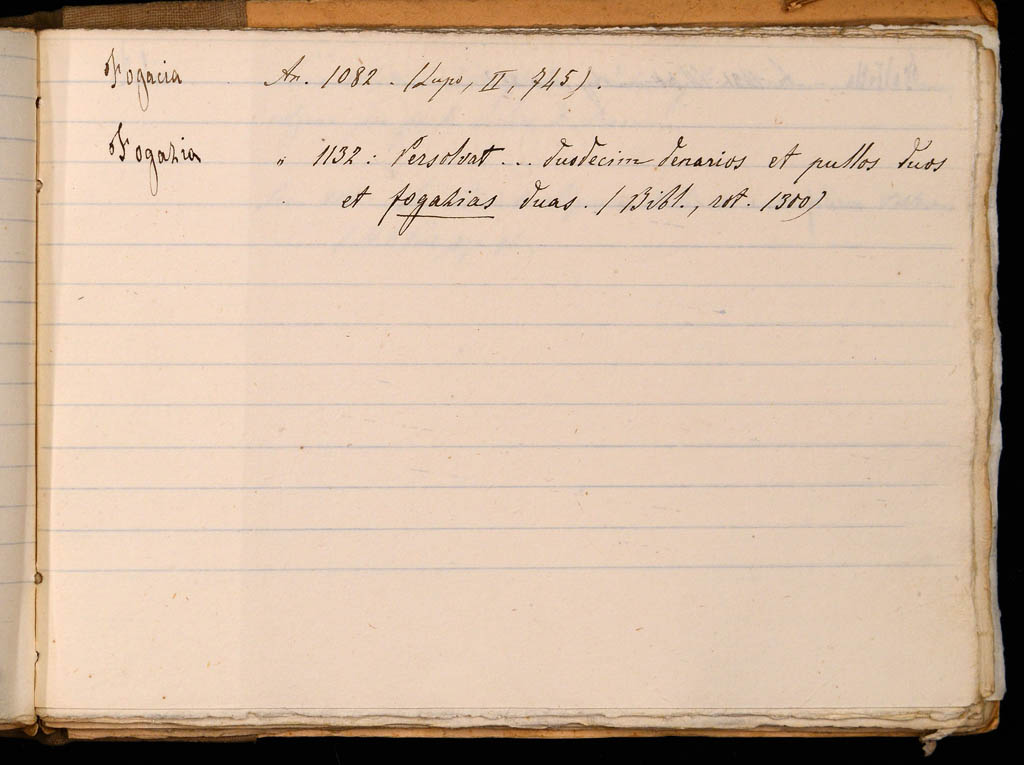 Fogacia An. 1082. (Lupo, II, 745).
Fogazia " 1132: Persolvat ... duodecim denarios et pullos duos
et fogazias duas. (Bibl., rot. 1300)